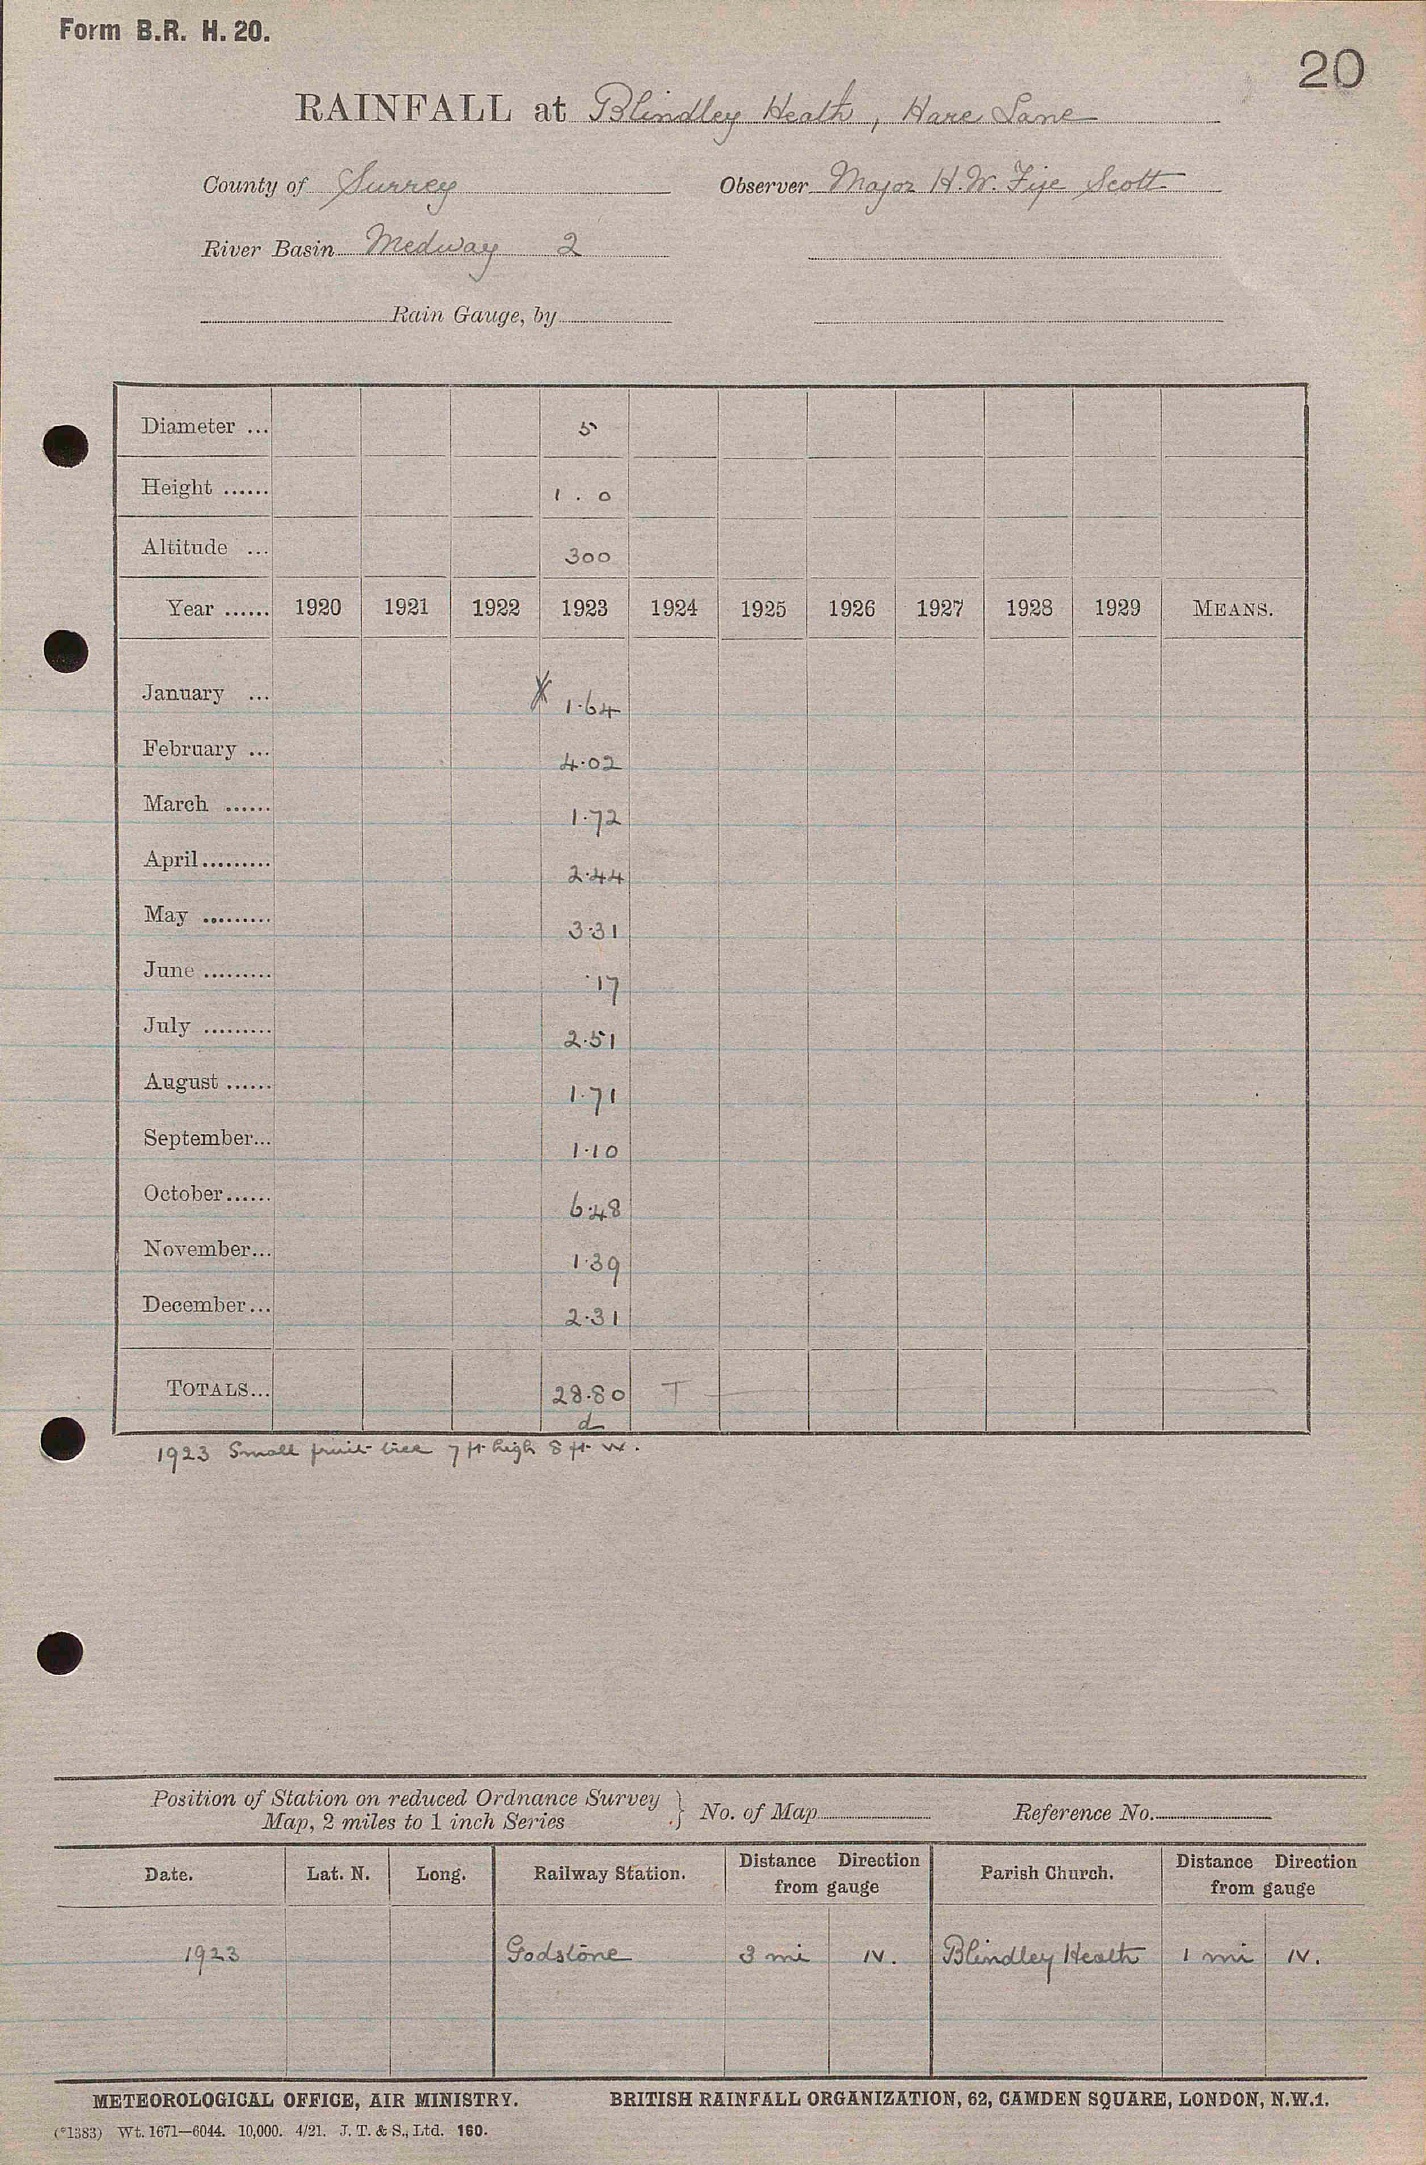 Form B.R. H. 20.
20
RAINFALL at Blindley Heath, Hare Lane
County of Surrey Observer Major H.W. Fife Scott
River Basin Medway 2
Rain Gauge, by
Diameter ... 5
Height ...... 1 . 0
Altitude ... 300
Year ...... 1920 1921 1922 1923 1924 1925 1926 1927 1928 1929 MEANS.
January ... X 1.64
February ... 4.02
March ...... 1.72
April ......... 2.44
May ......... 3.31
June ......... .17
July ......... 2.51
August ...... 1.71
September... 1.10
October...... 6.48
November... 1.39
December... 2.31
TOTALS... 28.80 T
d
1923 Small fruit tree 7 ft high 8 ft w.
Position of Station on reduced Ordnance Survey
Map, 2 miles to 1 inch Series } No. of Map Reference No.
Date. Lat. N. Long. Railway Station. Distance Direction from gauge Parish Church. Distance Direction from gauge
1923 Godstone 3 mi N. Blindley Heath 1 mi N.
METEOROLOGICAL OFFICE, AIR MINISTRY. BRITISH RAINFALL ORGANIZATION, 62, CAMDEN SQUARE, LONDON, N.W.1.
(*1383) Wt. 1671—6044. 10,000. 4/21. J. T. & S., Ltd. 160.